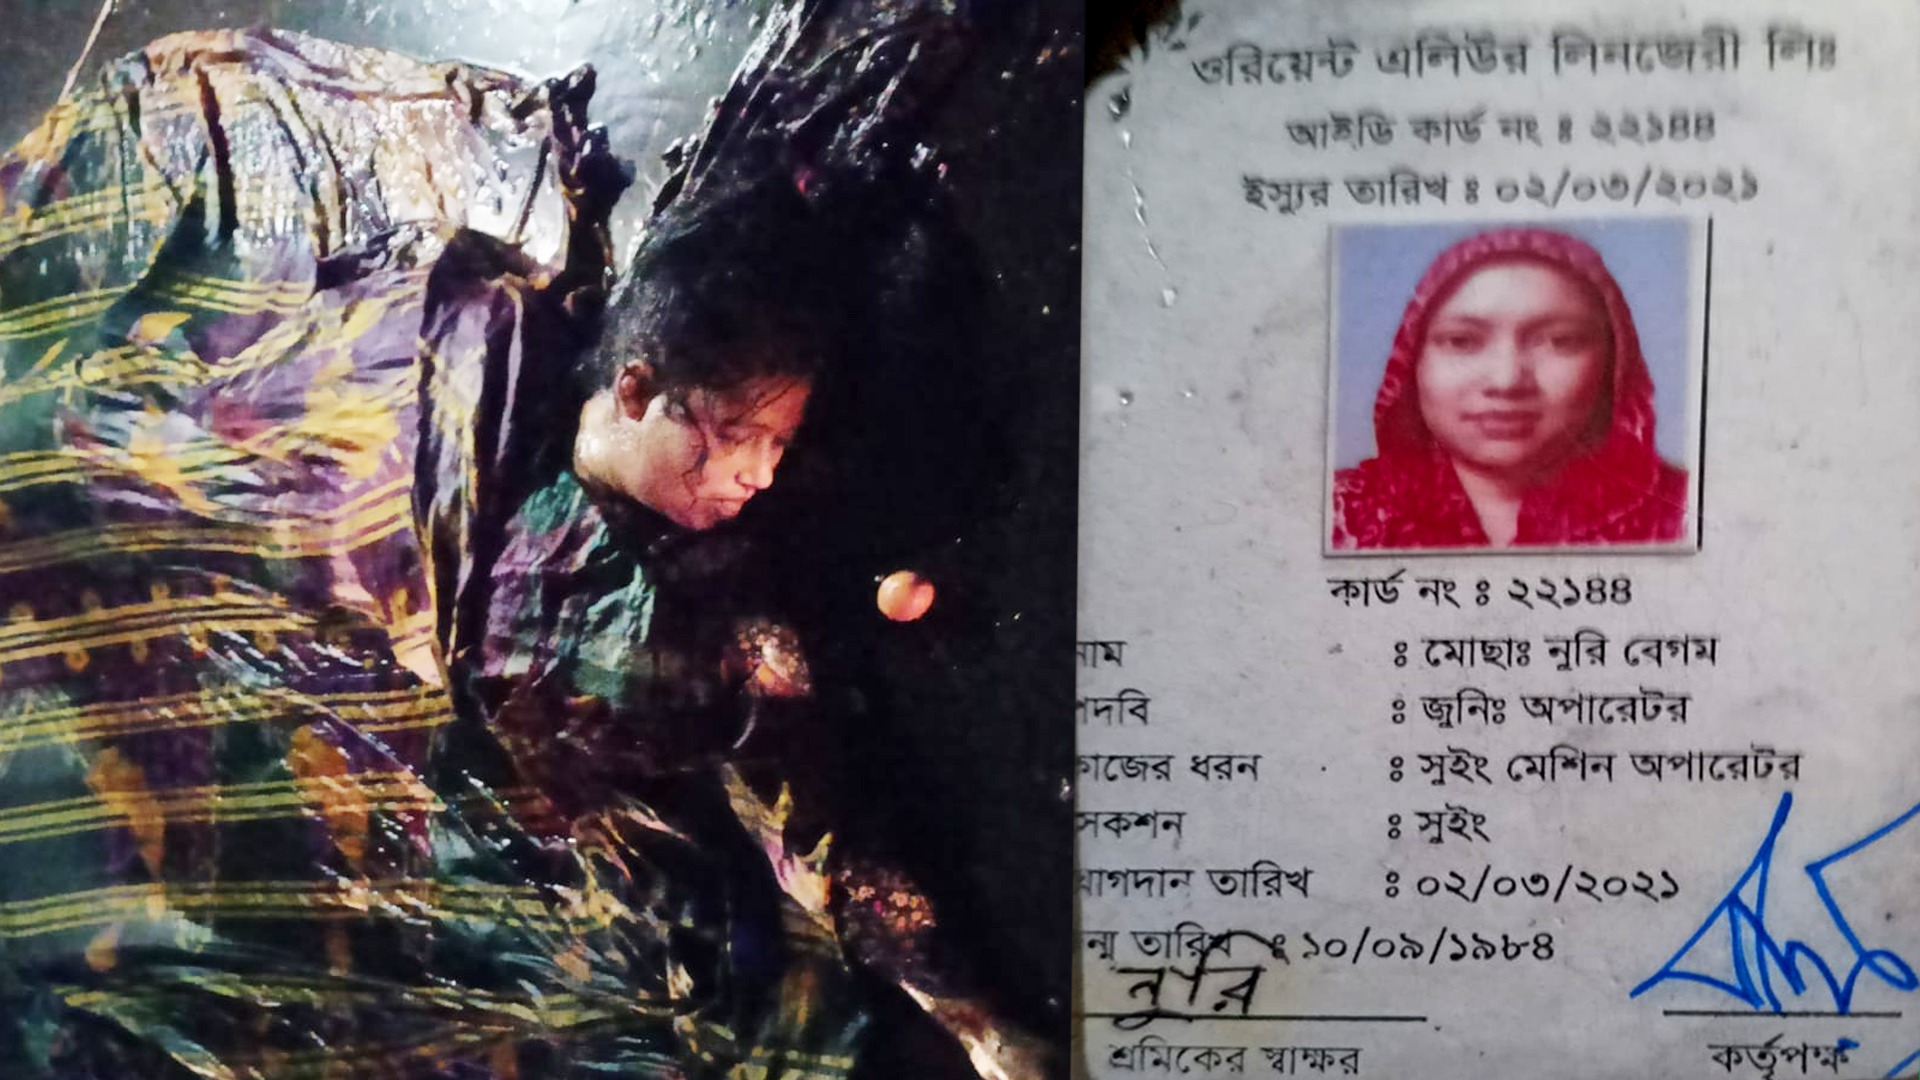 ওরিয়েন্ট এলিউর লিনজেরী লিঃ
আইডি কার্ড নং ঃ ২২১৪৪
ইস্যুর তারিখ ঃ ০২/০৩/২০২১
কার্ড নং ঃ ২২১৪৪
নাম ঃ মোছাঃ নুরি বেগম
পদবি ঃ জুনিঃ অপারেটর
কাজের ধরন ঃ সুইং মেশিন অপারেটর
সেকশন ঃ সুইং
যোগদান তারিখ ঃ ০২/০৩/২০২১
জন্ম তারিখ ঃ ১০/০৯/১৯৮৪
নুরি
শ্রমিকের স্বাক্ষর
কর্তৃপক্ষ